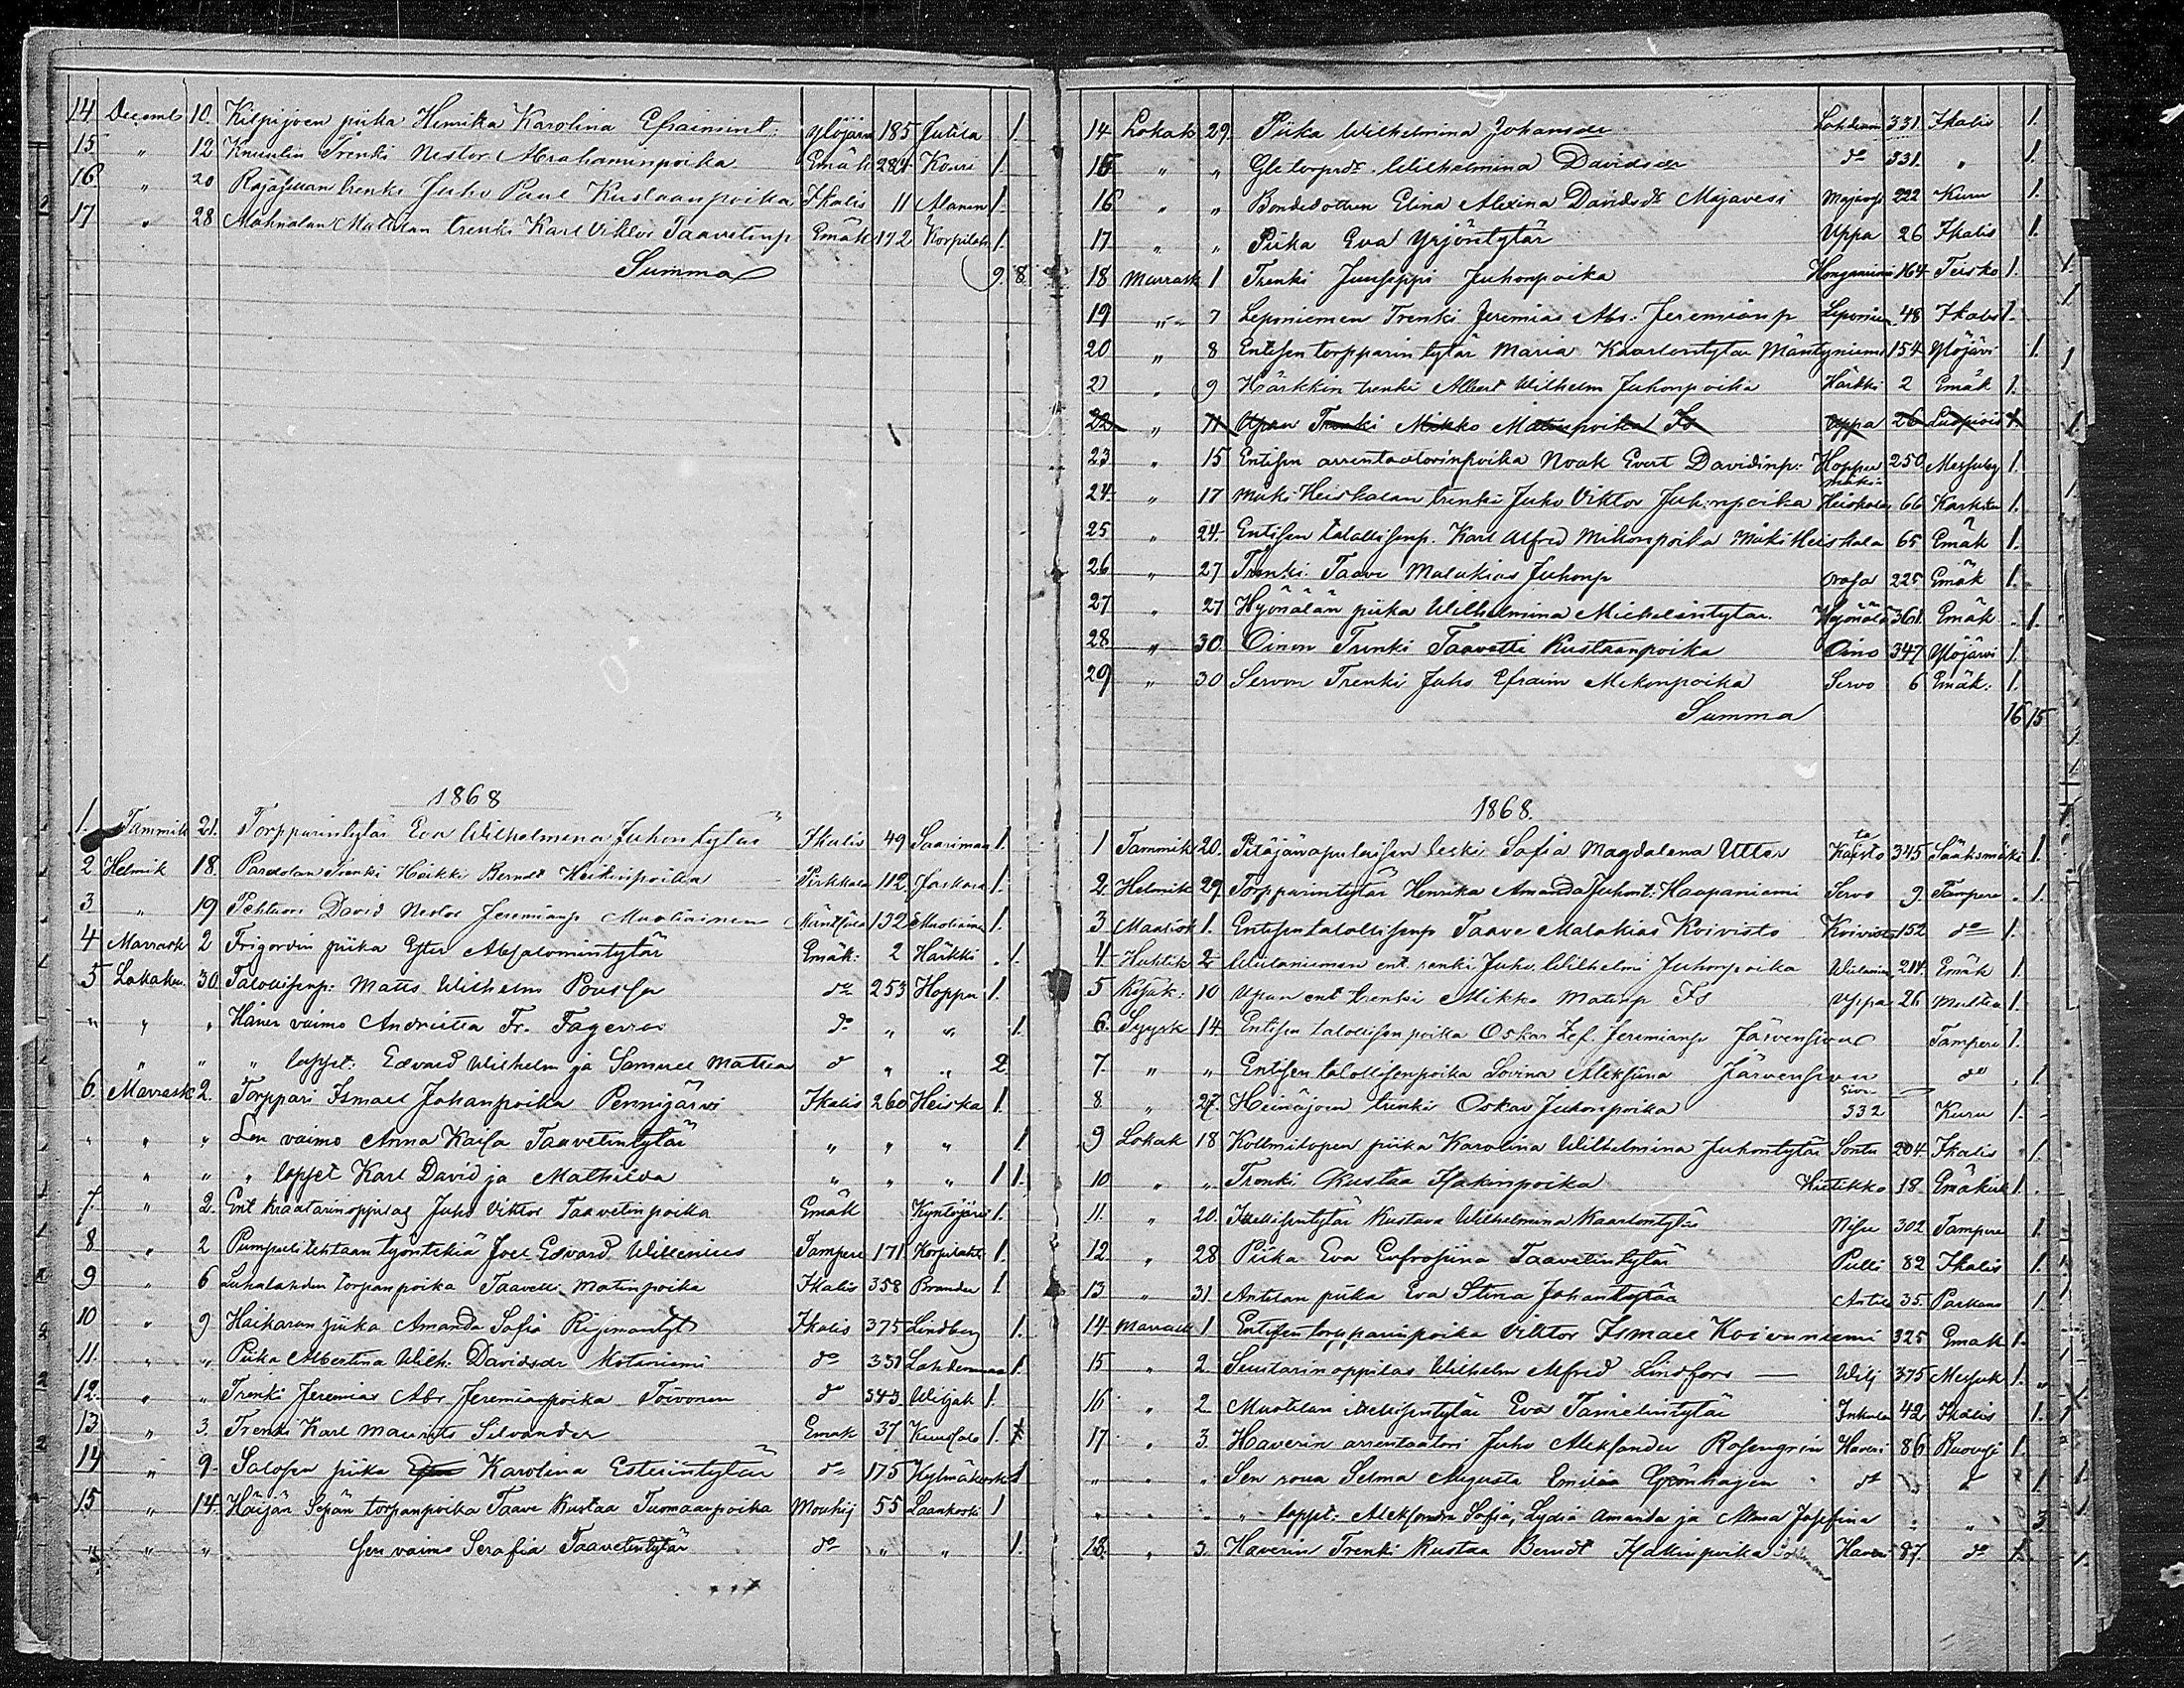 14 Decemb 10. Kilpijoen piika Henrika Karolina Efraimint. Ylöjärvi 185 Jutila 1.
15 " 12 Knuutin Trenki Nestor Abrahaminpoika Emäk 284 Kouri 1.
16 " 20 trenki Juho Paul Kustaanpoika Ikalis 11 Alanen 1.
17 " 28 Mahnalan trenki Karl Viktor Taavetinp Emäk 172 Korpilaht 1.
Summa 9. 8.
1868
1. Tammik 21. Torpparintytär Eva Wilhelmina Juhontytär Ikalis 49 Saarimaa 1.
2 Helmik 18. Trenki Heikki Berndt Heikinpoika Pirkkala 112 1.
3 " 19 David Nestor Jeremianp 132 1.
4 Marrask 2 piika Ester Absalomintytär Emäk: 2 Härkki . 1.
5 Lokaku. 30. Talollisenp: Matts Wilhelm do 253 Hoppu 1.
" " " Hänen vaimo Fr. do " " 1.
" " " lapset: Edvard Wilhelm ja Samuel Mattea d " " 2.
6. Marrask 2. Torppari Ismael Johanpoika Pennijärvi Ikalis 260 Heiska 1.
" " " Sen vaimo Anna Kaisa Taavetintytär " " " 1
" " " lapset Karl David ja Mathilda " " " 1 1.
7. " 2. Ent kraatarinoppilas Juho Viktor Taavetinpoika Emäk Kyntöjärvi 1.
8 " 2 Pumpulitehtaan työntekiä Joel Edvard Willenius Tampere 171 Korpilahti 1.
9 " 6 Luhalahden torpanpoika Taavetti Matinpoika Ikalis 358 Brander 1
10 " 9 Haikaran piika Amanda Sofia Ikalis 375 Lindberg 1.
11. " " Piika Albertina Wilh. Davidsdr Kotaniemi do 331 Lahdenmaa 1.
12. " " Trenki Jeremias Abr Jeremianpoika Toivonen do 343 Wiljak 1.
13 " 3. Trenki Karl Maurits Silvander Emäk 37 1.
14 " 9. Salosen piika Karolina Esterintytär do 175 1
15 " 14. Häijän Sepän torpanpoika Taave Kustaa Tuomaanpoika Mouhij 55 Laankoski 1
" " " Sen vaimo Serafia Taavetintytär do " " 1.
14 Lokak 29. Piika Wilhelmina Johansdr Lahden 331. Ikalis 1.
15 " " Wilhelmina Davidsdr do 331. " 1.
16 " " Bondedottren Elina Alexina Davidsdr Majavesi Majaves 222 Kuru 1.
17 " " Piika Eva Yrjöntytär Uppa 26 Ikalis 1.
18 Marrask 1 Trenki Juuseppi Juhonpoika Honganiemi 164 Teisko 1.
19 " 7 Leponiemen Trenki Jeremias Abr: Jeremianp Leponiem 48 Ikalis 1.
20 " 8 Entisen torpparin tytär Maria Kaarlontytär Mäntyniemi 154 Ylöjärvi 1.
21 " 9 Härkkin trenki Albert Wilhelm Juhonpoika Härkki 2 Emäk 1.
22 " 11 Upan Trenki Mikko Matinpoika Is Uppa 26 1.
23 " 15 Entisen arrentaatorinpoika Noak Evert Davidinp: Hoppu 250 Messuby 1.
24 " 17 Mäki Heiskalan trenki Juho Viktor Juhonpoika Mäki Heiskala 66 Karkku 1.
25 " 24. Entisen talollisenp. Karl Alfred Mikonpoika Mäki Heiskala 65 Emäk 1.
26 " 27 Trenki Taave Malakias Juhonp 225 Emäk 1.
27 " 27 Hyönälän piika Wilhelmina Michelintytär Hyönälä 361. Emäk 1.
28 " 30. Oinon Trenki Taavetti Kustaanpoika Oino 347 Ylöjärvi 1.
29 " 30 Servon Trenki Juho Efraim Mikonpoika Servo 6 Emäk: 1.
Summa 16 15
1868.
1 Tammik 20. Pitäjänapulaisen leski Sofia Magdalena Utter 345 Sääksmäki 1.
2. Helmik 29. Torpparintytär Henrika Amanda Juhont: Haapaniemi Servo 9. Tampere 1.
3 Maalisk 1. Entisen talollisenp Taave Malakias Koivisto Koivisto 152 do 1.
4 Huhtik 2 ent. renki Juho Wilhelmi Juhonpoika 214. Emäk 1.
5 Kesäk: 10 Upan ent trenki Mikko Matinp Is Uppa 26 Multia 1.
6. Syysk 14. Entisen talollisen poika Oskar Zef. Jeremianp Järvensivu Tampere 1.
7. " " Entisen talollisenpoika Lovina Aleksiina Järvensivu do 1.
8 " 27. Heinäjoen trenki Oskar Juhonpoika Sivu 332 Kuru 1.
9 Lokak 18 piika Karolina Wilhelmina Juhontytär Sontu 204. Ikalis 1.
10 " " Trenki Kustaa Iisakinpoika Hietikko 18. Emäkirk 1.
11. " 20. Kustava Wilhelmina Kaarlontytär 302 Tampere 1.
12. " 28. Piika Eva Eufrosiina Taavetintytär Pulli 82 Ikalis 1.
13. " 31. Antilan piika Eva Stina Johantytär Antila 35. Parkano 1
14. Marrask 1 Entisen torpparinpoika Viktor Ismael Koivuniemi 325 Emäk 1.
15 " 2. Suutarinoppilas Wilhelm Alfred Lindfors — Wilj 375 Messuk 1.
16 " 2 Eva Tanielintytär 42 Ikalis 1.
17 " 3. Haverin arrentaatori Juho Aleksander Rosengrén Haveri 86 Ruovesi 1.
" " " Sen rouva Selma Augusta Emilia Grönhagen do " " 1
" " " lapset: Aleksandra Sofia, Lydia Amanda ja Alma Josefina " " 3
18. " 3. Haverin Trenki Kustaa Berndt Haveri 87. do 1.